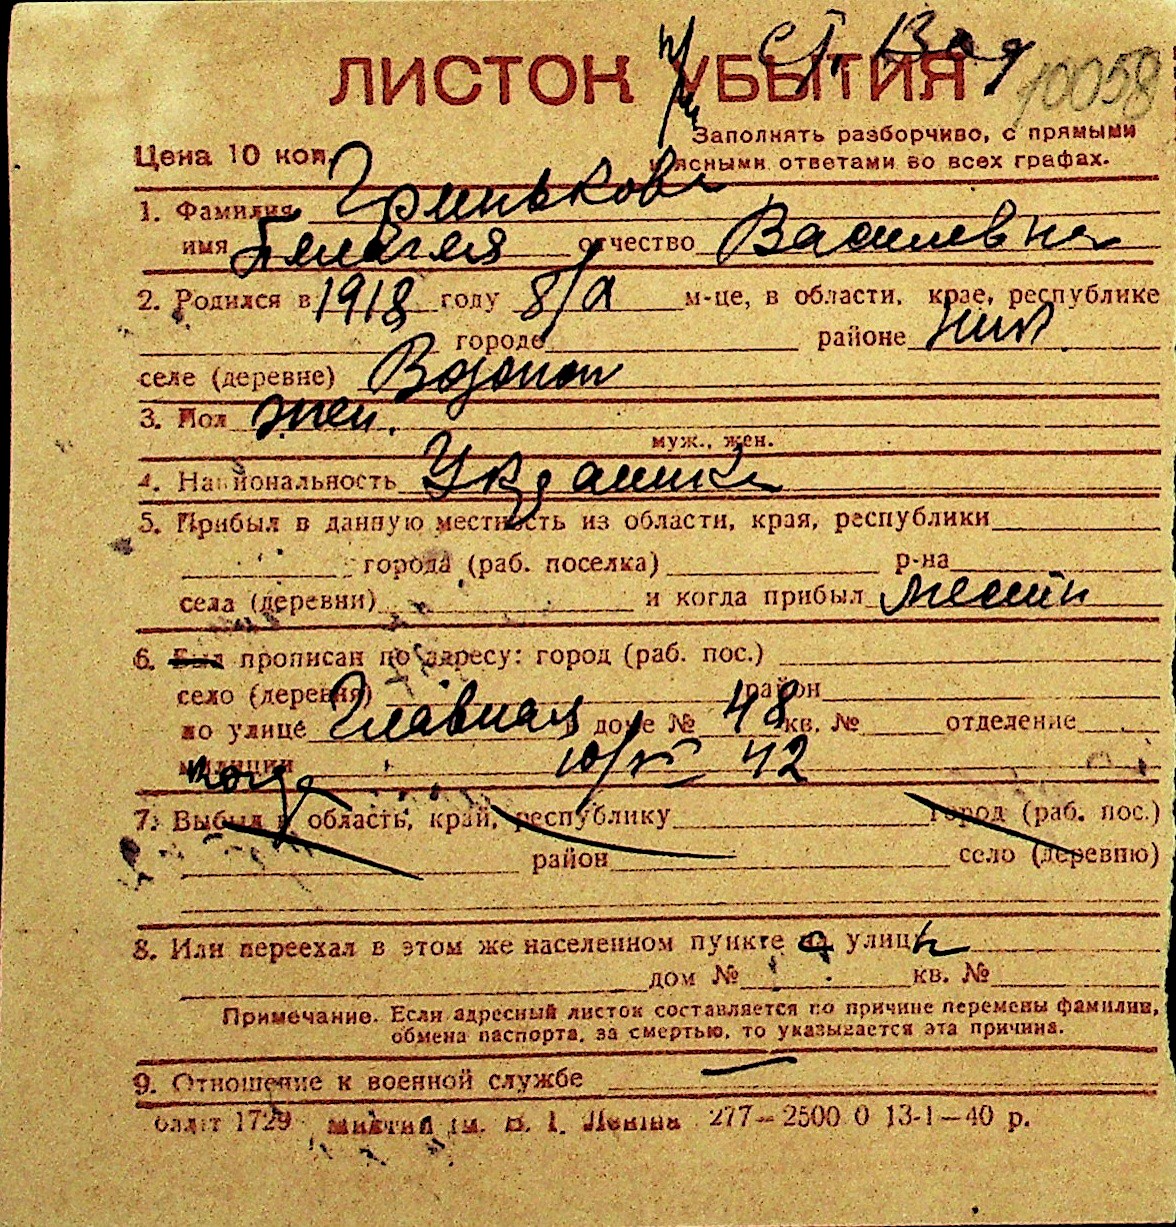 ст. Вод
ЛИСТОК УБЫТИЯ 10058
Заполнять разборчиво, с прямыми
Цена 10 коп. и ясными ответами во всех графах.
1. Фамилия Гринькова
имя Пелагея отчество Васильевна
2. Родился в 1918 году 8/X м-це, в области, крае, республике
городе районе
селе (деревне)
3. Пол жен.
муж., жен.
4. Национальность Украинка
5. Прибыл в данную местность из области, края, республики
города (раб. поселка) р-на
села (деревни) и когда прибыл местн
6. Был прописан по адресу: город (раб. пос.)
село (деревня) район
по улице Главная доме № 48 кв. № отделение
милиции когда 10/VI 42
7. Выбыл в область, край, республику город (раб. пос.)
район село (деревню)
8. Или переехал в этом же населенном пункте на улицу
дом № кв. №
Примечание. Если адресный листок составляется по причине перемены фамилии,
обмена паспорта, за смертью, то указывается эта причина.
9. Отношение к военной службе —
1729 им. В. И. Ленина 277—2500 0 13-1—40 р.